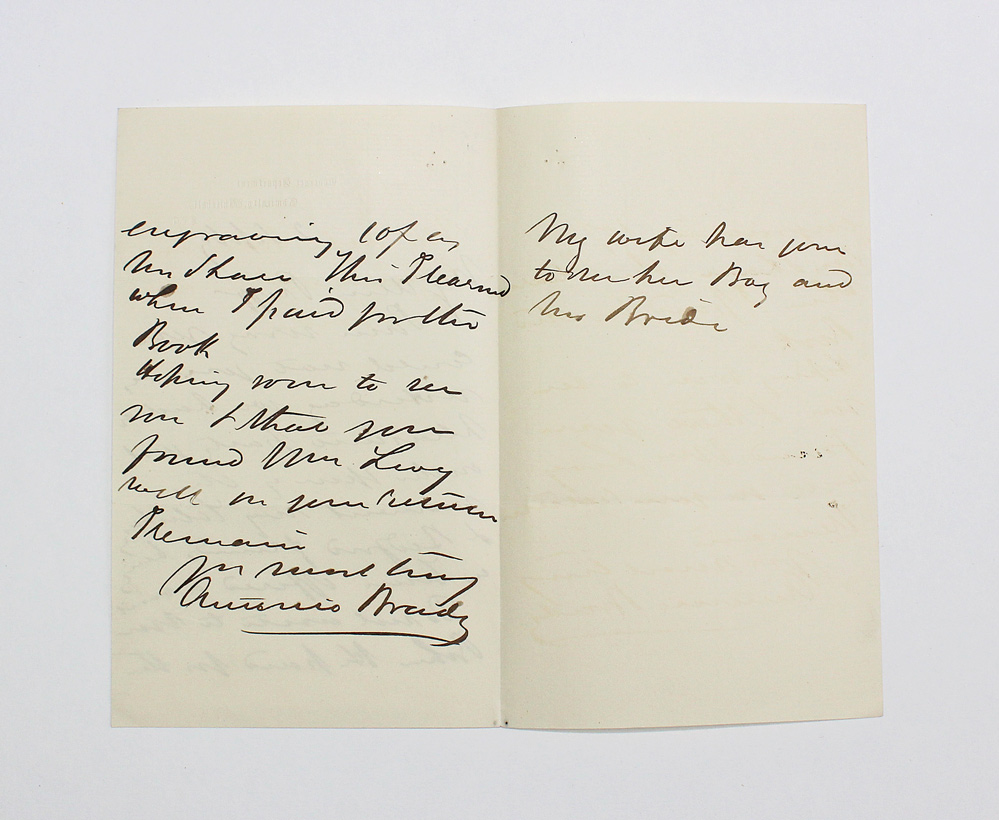 engraving 10/ ea
This I learned
when I paid for the
Book
Hoping soon to see
you & that you
found Mrs Levy
well on your return
I remain
Yrs most truly
Antonio Brady
My wife has gone
to see her Boy and
his Bride